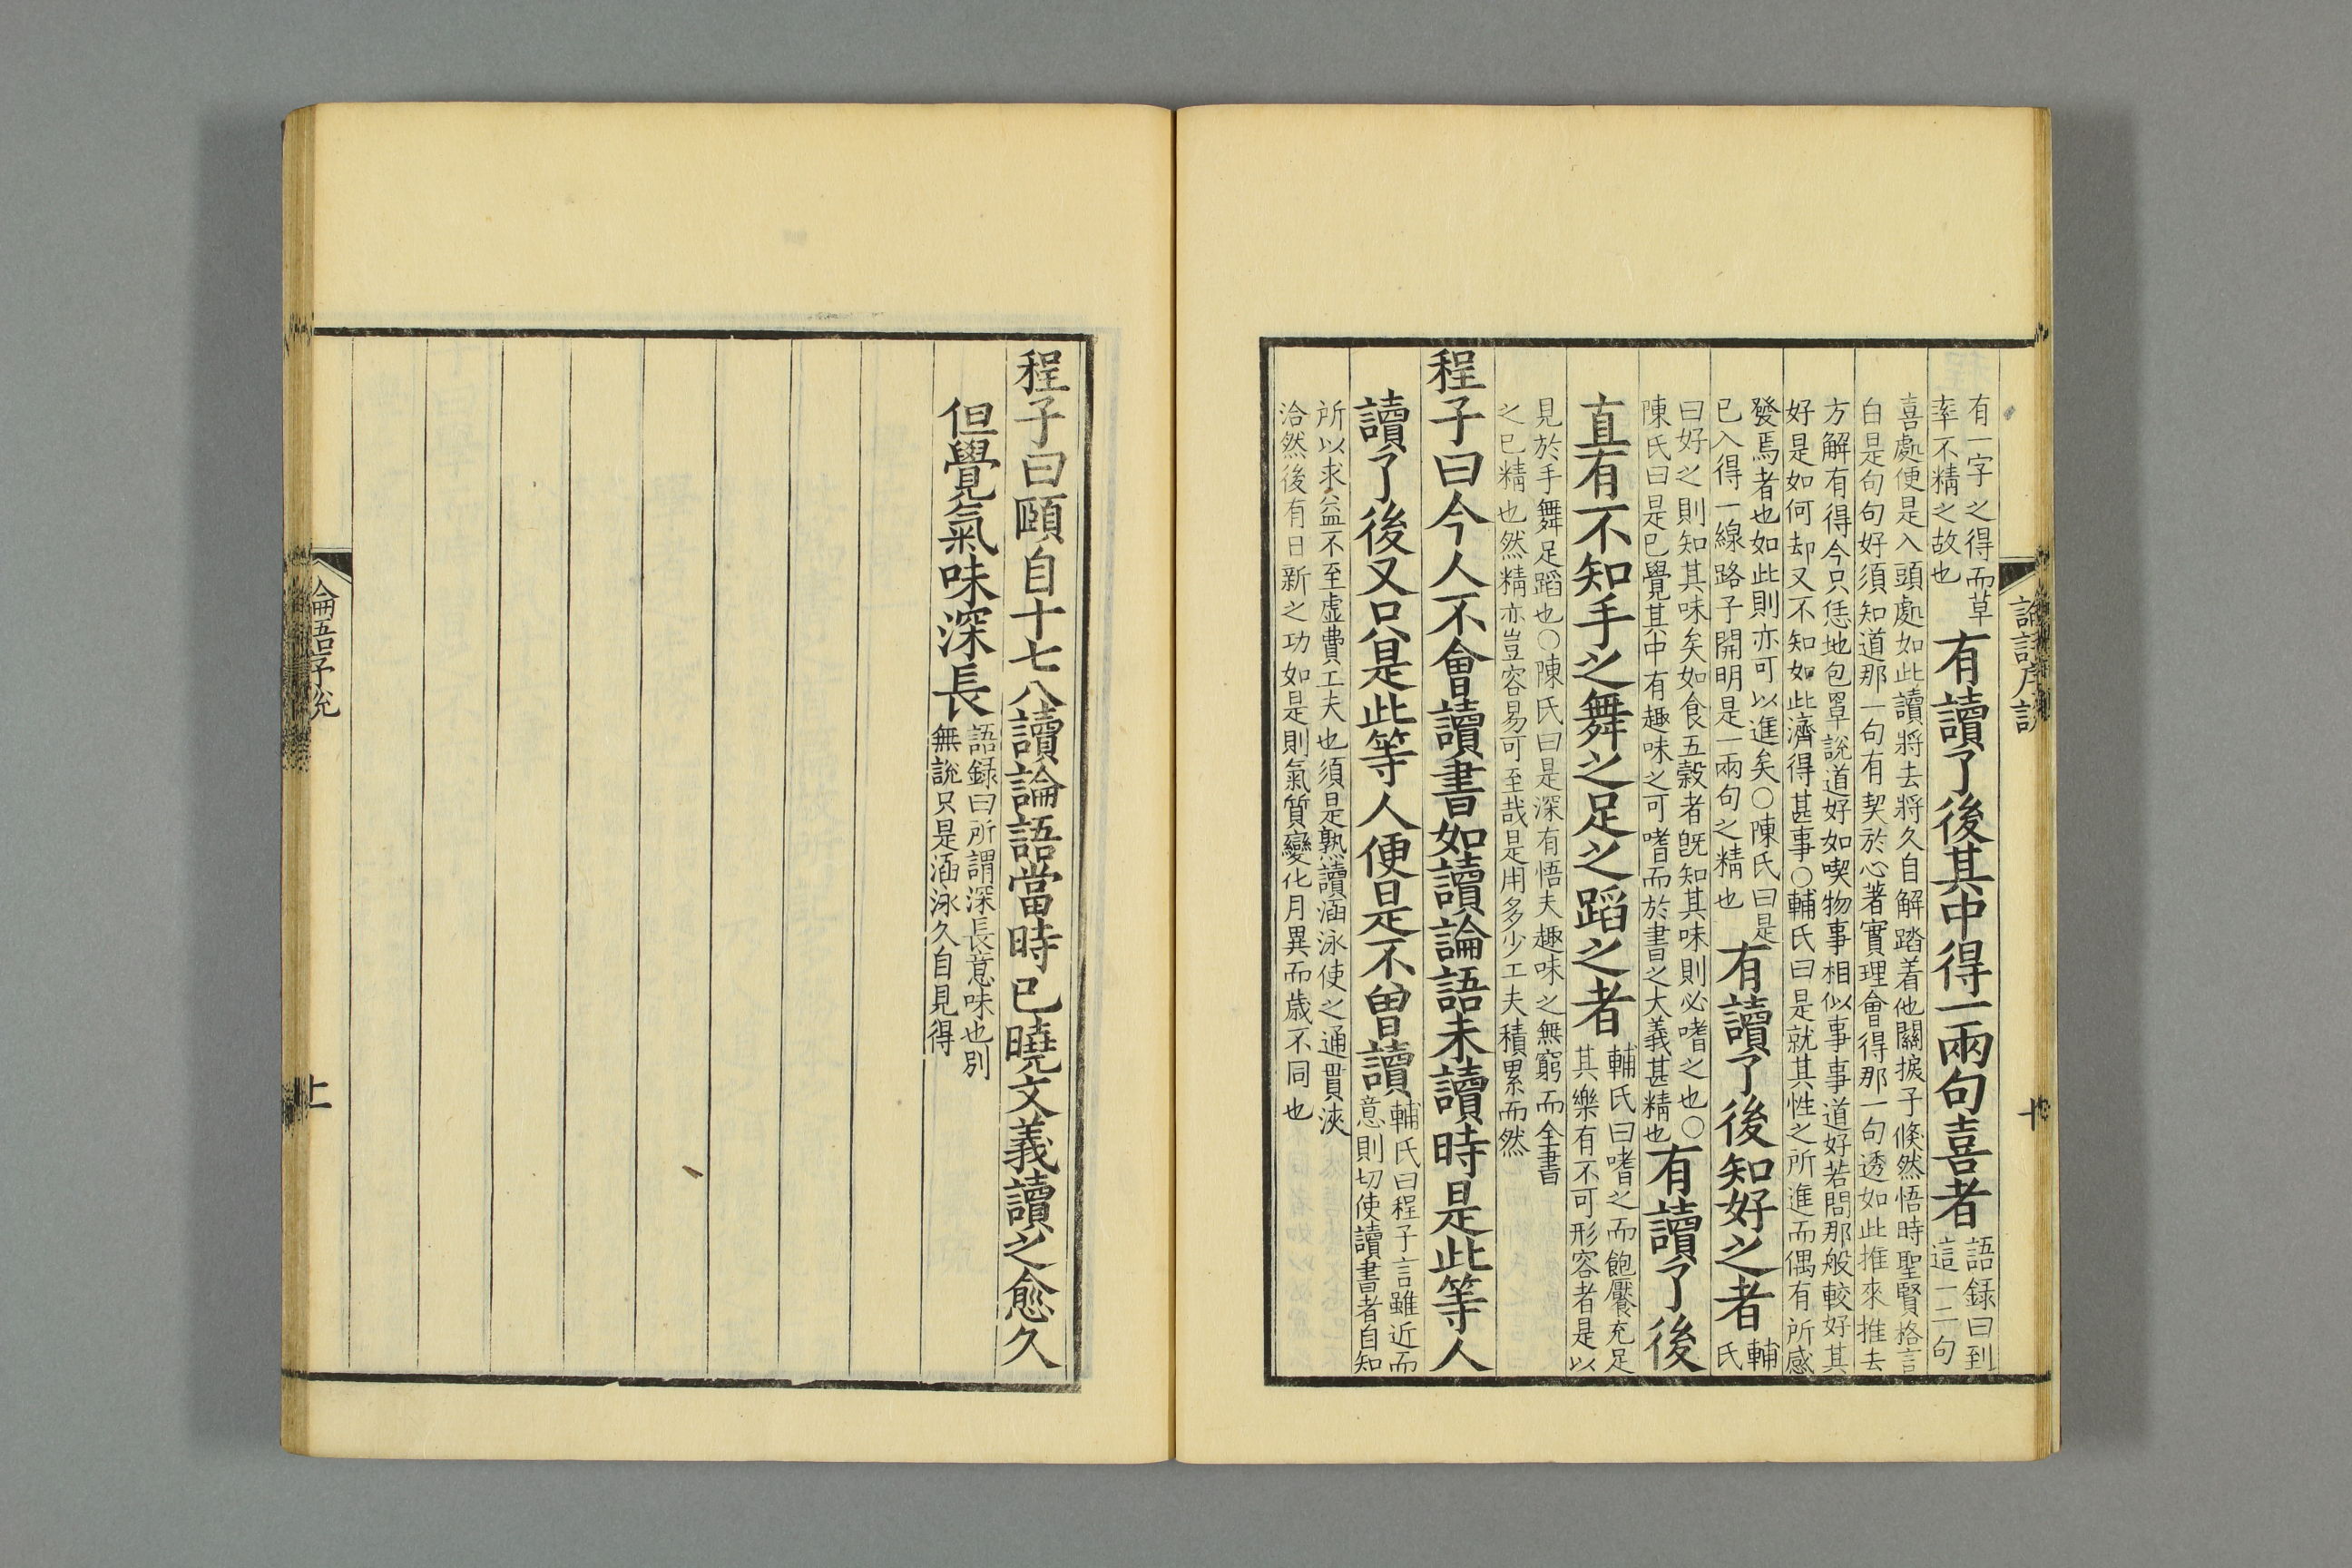 論語序說
十
有一字之得而草
率不精之故也
有讀了後其中得一兩句喜者
語録曰到
這一二句
喜處便是入頭處如此讀將去將久自解踏着他關捩子倐然悟時聖賢格言
自是句句好須知道那一句有契於心著實理會得那一句透如此推來推去
方解有得今只恁地包罩說道好如喫物事相似事事道好若問那般較好其
好是如何却又不知如此濟得甚事○輔氏曰是就其性之所進而偶有所感
發焉者也如此則亦可以進矣○陳氏曰是
已入得一線路子開明是一兩句之精也
有讀了後知好之者
輔
氏
曰好之則知其味矣如食五穀者既知其味則必嗜之也○
陳氏曰是已覺其中有趣味之可嗜而於書之大義甚精也
有讀了後
直有不知手之舞之足之蹈之者
輔氏曰嗜之而飽饜充足
其樂有不可形容者是以
見於手舞足蹈也○陳氏曰是深有悟夫趣味之無窮而全書
之已精也然精亦豈容易可至哉是用多少工夫積累而然
程子曰今人不會讀書如讀論語未讀時是此等人
讀了後又只是此等人便是不曽讀
輔氏曰程子言雖近而
意則切使讀書者自知
所以求益不至虚費工夫也須是熟讀涵泳使之通貫浹
洽然後有日新之功如是則氣質變化月異而歳不同也
程子曰頤自十七八讀論語當時已曉文義讀之愈久
但覺氣味深長
語録曰所謂深長意味也別
無說只是涵泳久自見得
論語序說